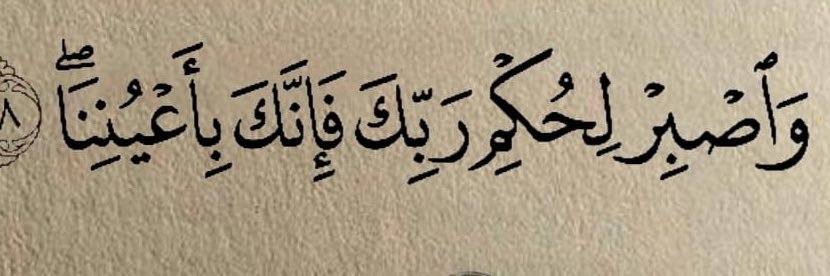 وَٱصْبِرْ لِحُكْمِ رَبِّكَ فَإِنَّكَ بِأَعْيُنِنَاۖ ٨